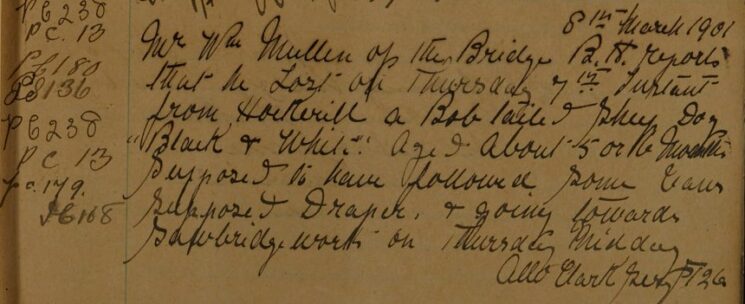 PC 238
PC. 13
PC 180
PS 136
PC 238
PC 13
PC. 179.
PC 168
8th March 1901
Mr Wm Mullen of the Bridge B.H. reports
that he Lost on Thursday 7th Instant
from Hockerill a Bob tailed Shep Dog
"Black & White". Aged About 5 or 6 Months
Supposed to have followed Some Vans
Supposed Draper, & going towards
Sawbridgeworth on Thursday Midday
Clark Sergt 126